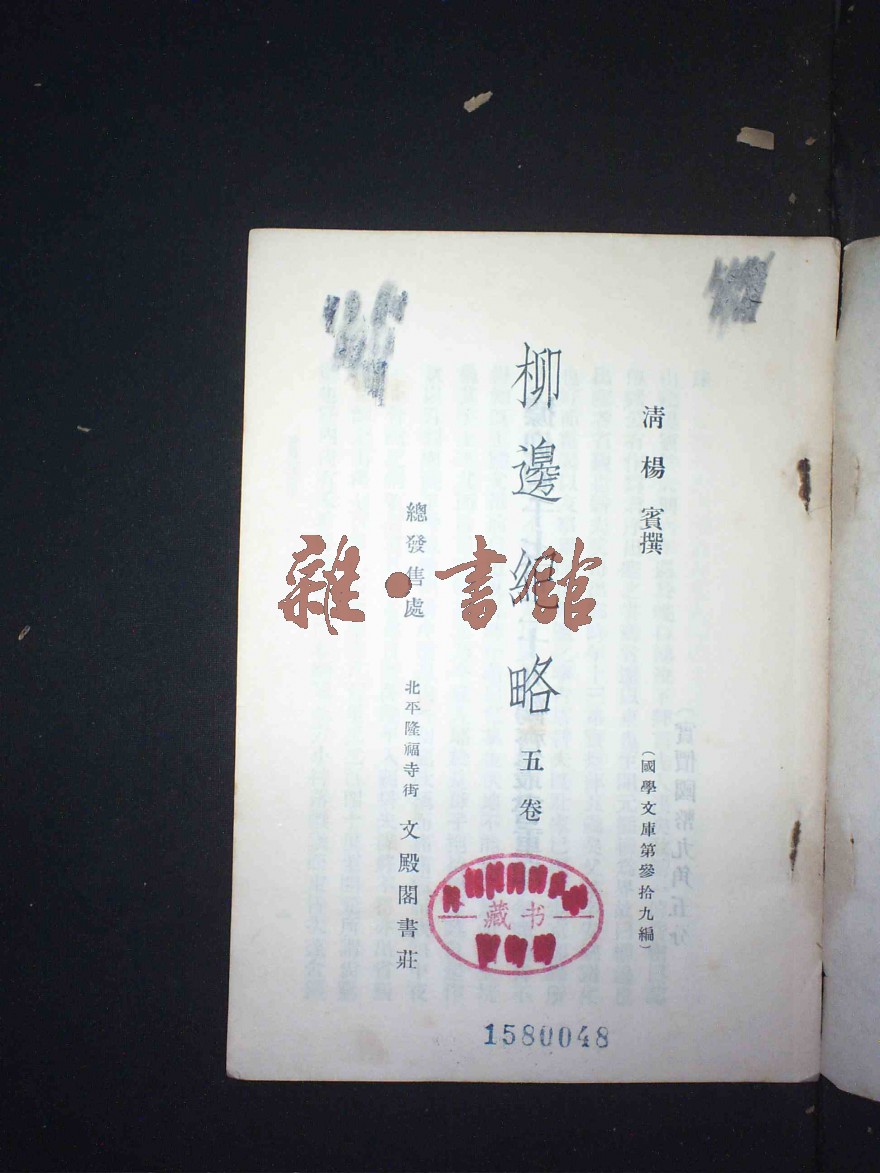 清 楊 賓 撰
（國學文庫第參拾九編）
柳邊紀略 五卷
總發售處 北平隆福寺街 文殿閣書莊
雜·書館
藏书
1580048